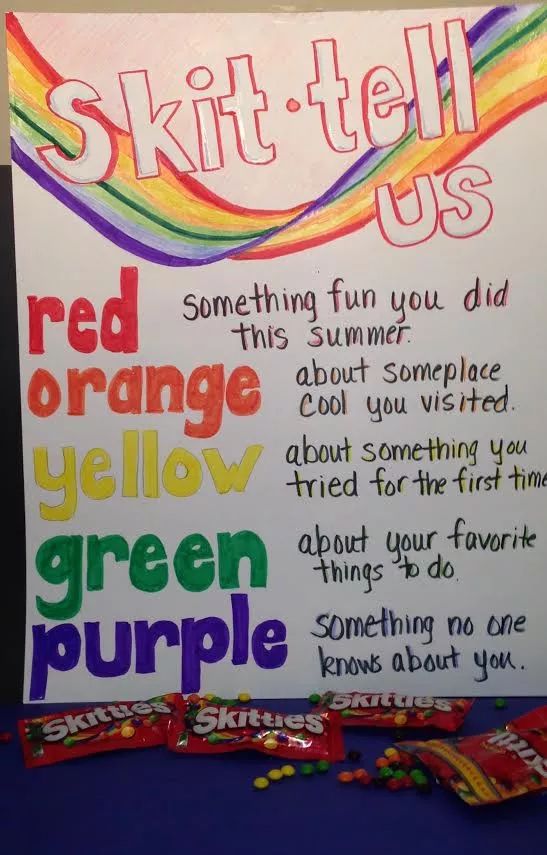 Skit·tell
us
red something fun you did
this summer.
orange about someplace
cool you visited.
yellow about something you
tried for the first time
green about your favorite
things to do.
purple something no one
knows about you.
Skittles Skittles Skittles